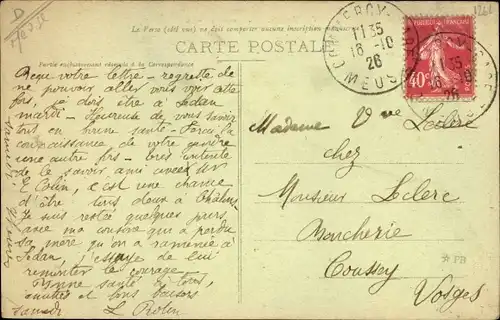 D
1261
La Verso (côté vue) ne doit comporter aucune inscription
CARTE POSTALE
Partie exclusivement réservée à la Correspondance
COMMERCY
MEUSE
11 35
16 -10
26
40
Reçu votre lettre - regrette de
ne pouvoir aller vous voir cette
fois, je dois être à Sedan
mardi - Heureuse de vous savoir
tout en bonne santé - Ferai la
connaissance de votre gendre
une autre fois - très contente
de le savoir ami avec
E Colin, c'est une chance
d'être tous deux à Châlons
Je suis restée quelques jours
avec ma cousine qui a perdu
sa mère qu'on a ramenée à
Sedan, j'essaye de lui
remonter le courage.
Bonne santé à tous,
amitiés et bons baisers
Samedi L Rolin
Madame Vve Leclerc
chez
Monsieur Leclerc
Boucherie
Coussey
Vosges
FB